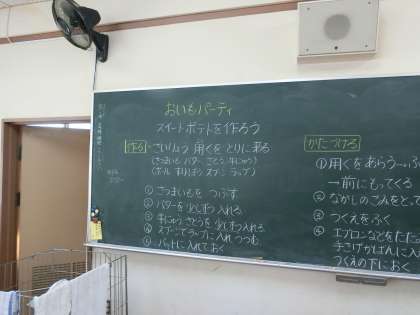 おいもパーティ
スイートポテトを作ろう
作る
ざいりょう 用ぐを とりに来る
(さつまいも バター さとう 牛にゅう)
(ボール すりぼう スプーン ラップ)
① さつまいもを つぶす
② バターを 少しずつ 入れる
③ 牛にゅう さとう 少しずつ 入れる
④ スプーンでラップに入れ つつむ
⑤ バットに入れておく
かたづける
① 用ぐをあらう→ふ
一前にもってくる
② ながしのごみをとって
③ つくえをふく
④ エプロンなどをたた
手さげかばんに入
つくえの下におく